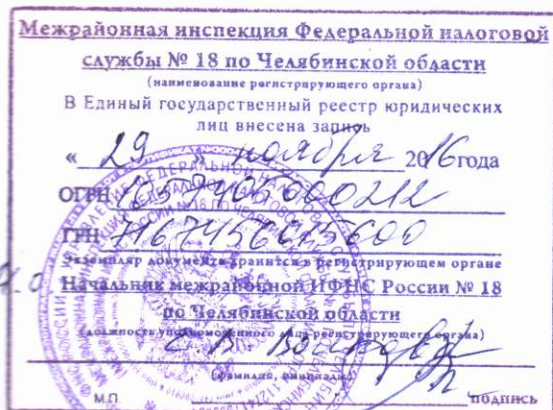 Межрайонная инспекция Федеральной налоговой
службы № 18 по Челябинской области
(наименование регистрирующего органа)
В Единый государственный реестр юридических
лиц внесена запись
« 29 » ноября 2016 года
ОГРН 1057405000212
ГРН
Экземпляр документа хранится в регистрирующем органе
Начальник межрайонной ИФНС России № 18
по Челябинской области
(должность уполномоченного лица регистрирующего органа)
С. В.
(фамилия, инициалы)
М.П. подпись